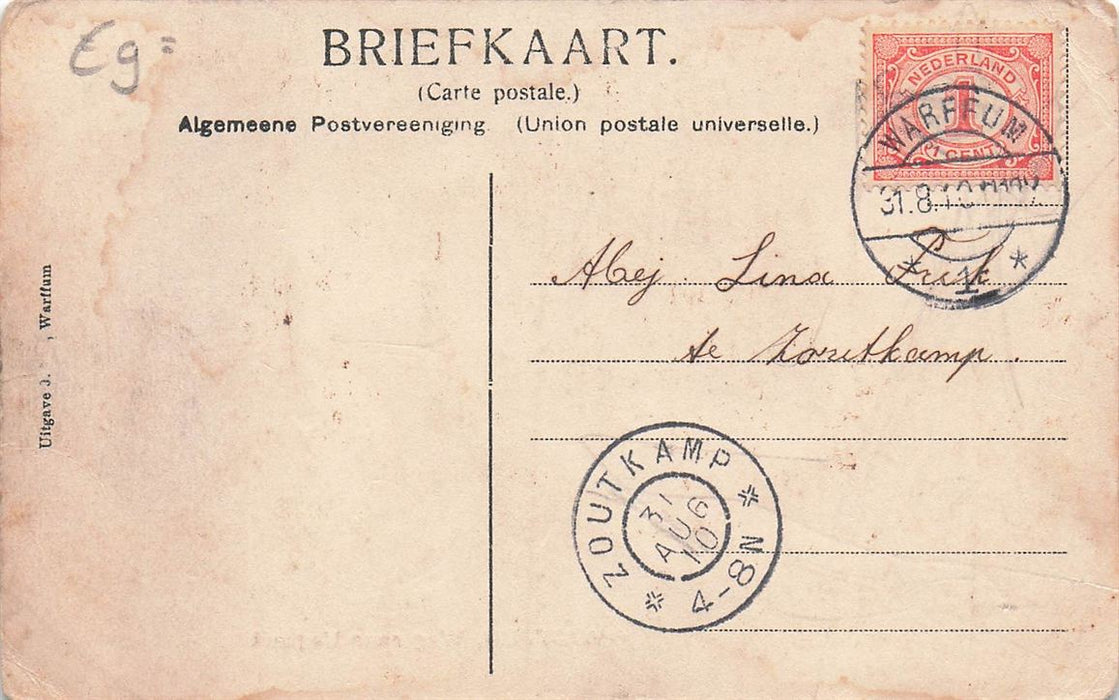 Eg=
BRIEFKAART.
(Carte postale.)
Algemeene Postvereeniging (Union postale universelle.)
NEDERLAND
1
1 CENT
WARFFUM
31.8.10
* 1 *
Lina
te Zoutkamp.
ZOUTKAMP
31
AUG
10
4-8N
Uitgave J. , Warffum